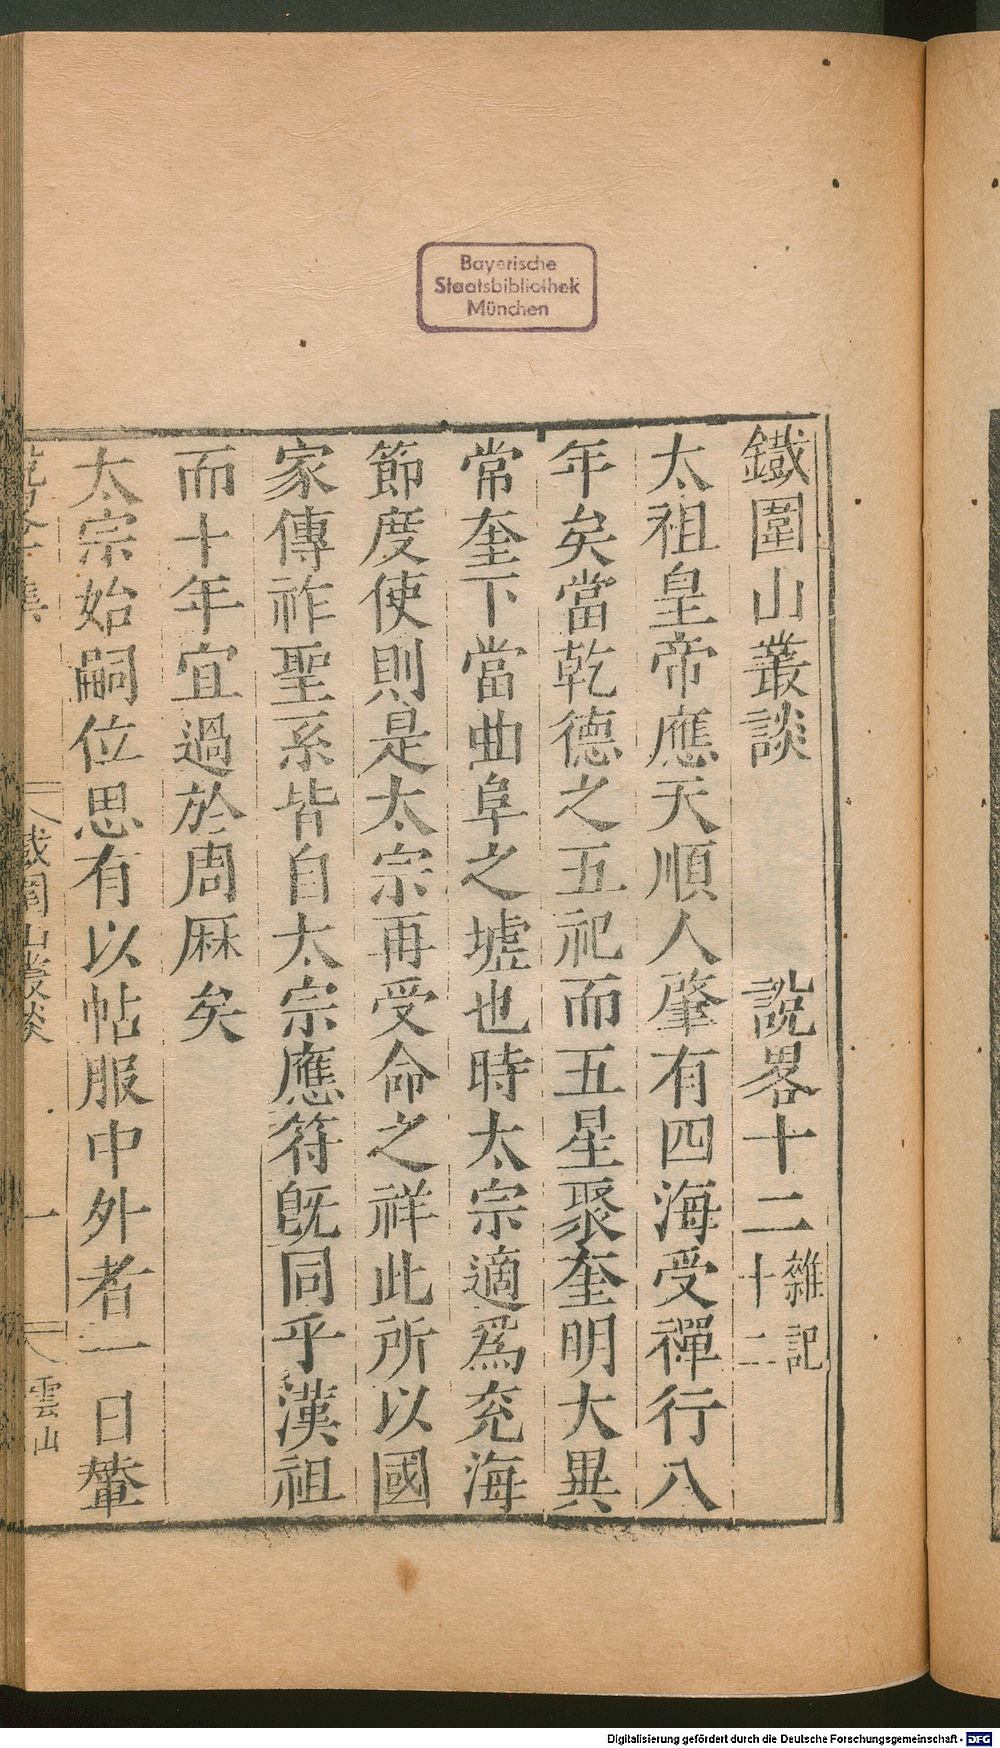 Bayerische
Staatsbibliothek
München
鐵圍山叢談 說畧十二 雜記十二
太祖皇帝應天順人肇有四海受禪行八
年矣當乾德之五祀而五星聚奎明大異
常奎下當曲阜之墟也時太宗適爲兖海
節度使則是太宗再受命之祥此所以國
家傳祚聖系皆自太宗應符旣同乎漢祖
而十年宜過於周厤矣
太宗始嗣位思有以帖服中外者一日輦
鐵圍山叢談 一 雲山
Digitalisierung gefördert durch die Deutsche Forschungsgemeinschaft - DFG